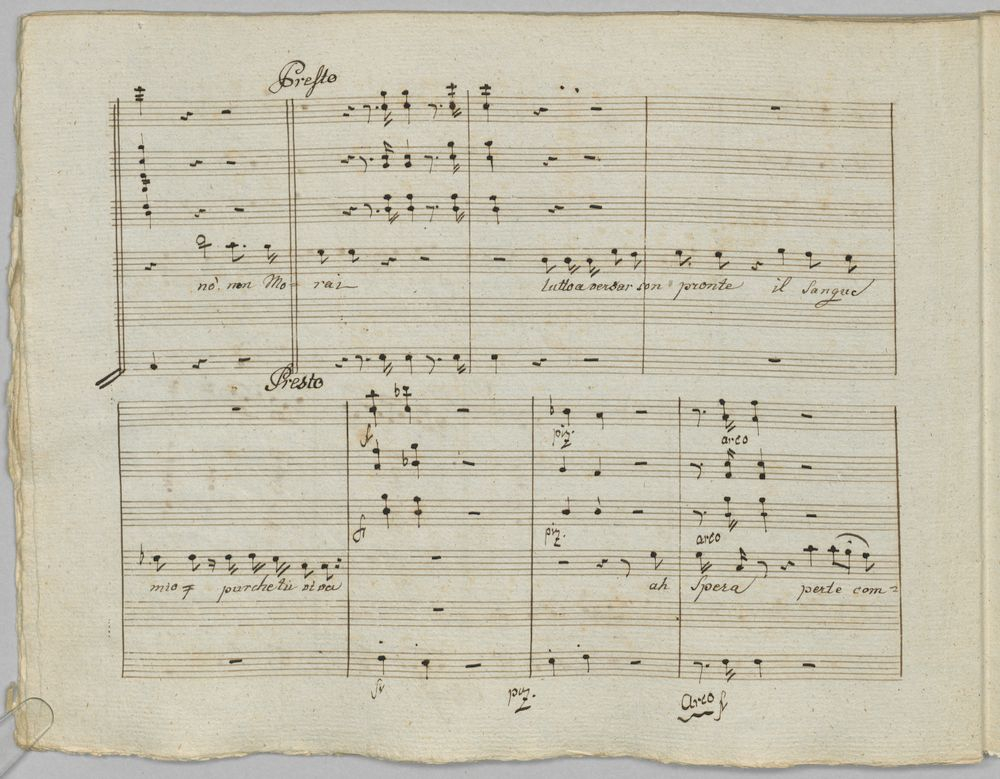 Presto
nò. non Mo- rai
tutto a versar son pronte il Sangue
Presto
f piz. arco
f piz. arco
mio purche tu viva ah Spera perte com=
f piz. Arco f